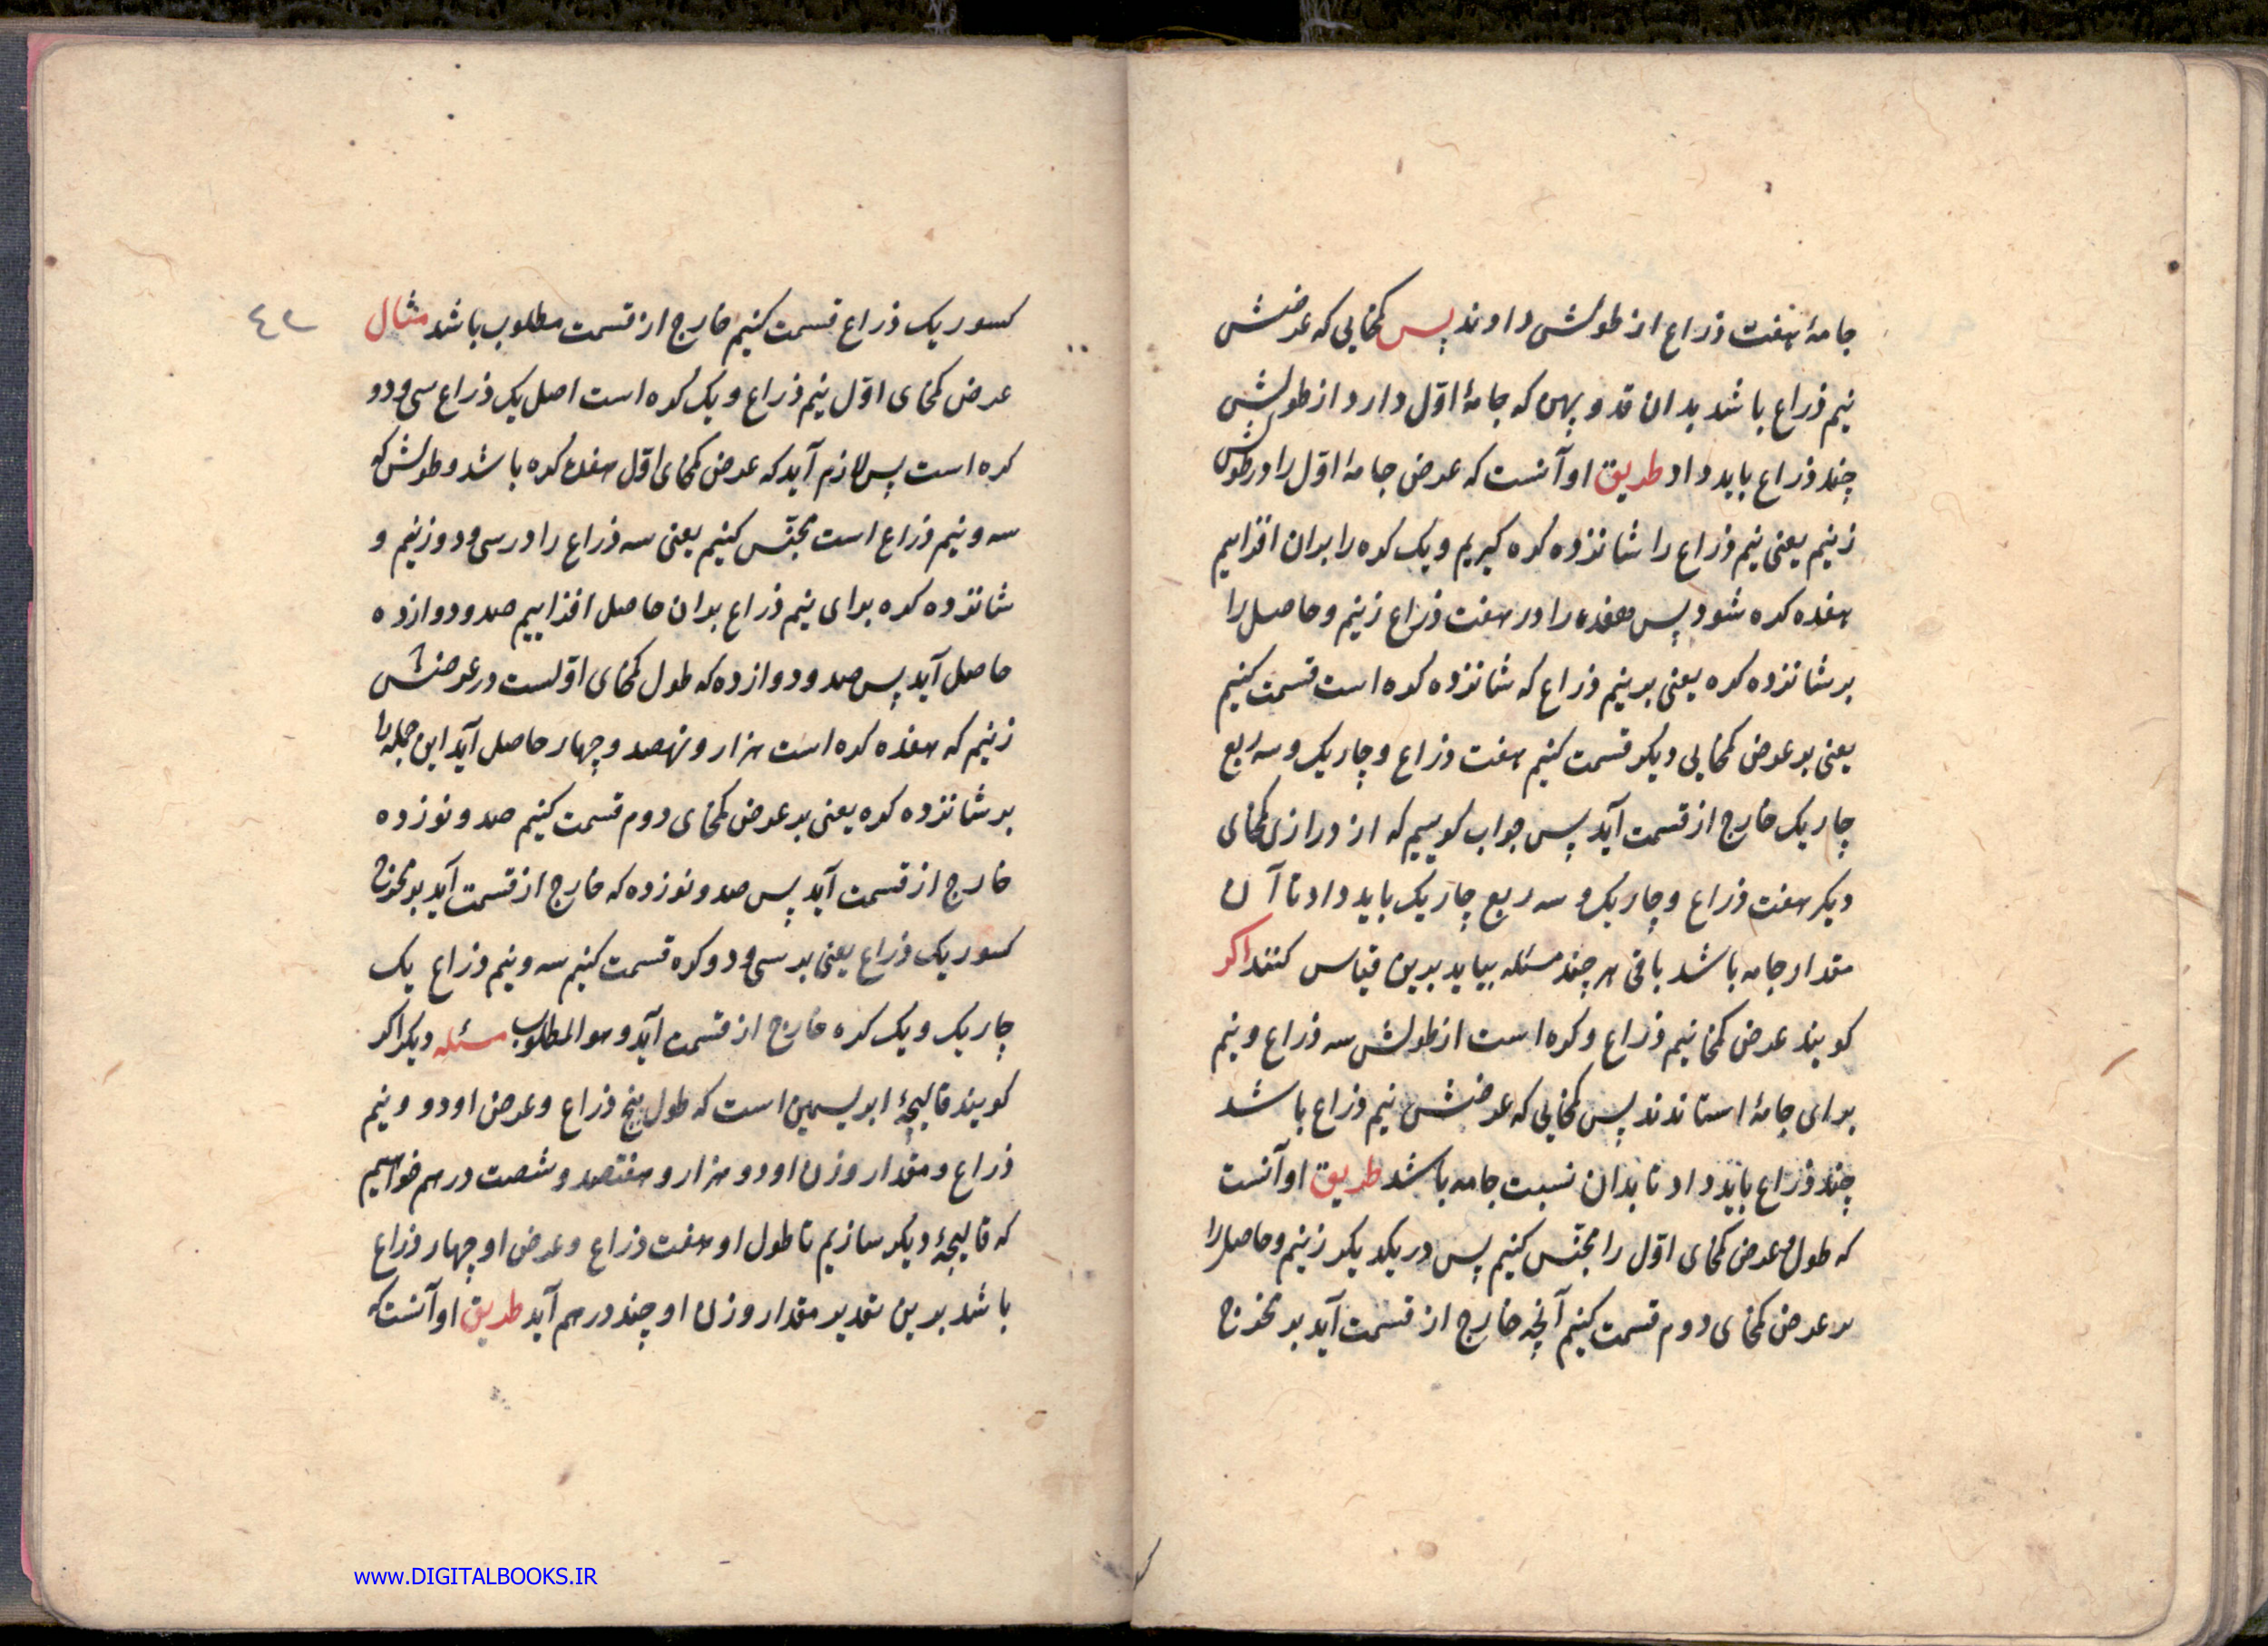 جامهٔ هفت ذراع از طولش دادند پس کمخایی که عرضش
نیم ذراع باشد بدان قد و پهن که جامهٔ اوّل دارد از طولش
چند ذراع باید داد طریق او آنست که عرض جامهٔ اوّل را در طولش
زنیم یعنی نیم ذراع را شانزده کره کیریم و یک کره را بران افزاییم
هفده کره شود پس هفده را در هفت ذراع زنیم و حاصل را
بر شانزده کره یعنی بر نیم ذراع که شانزده کره است قسمت کنیم
یعنی بر عرض کمخایی دیکر قسمت کنیم هفت ذراع و چاریک و سه ربع
چاریک خارج از قسمت آید پس جواب کوییم که از درازی کمخای
دیکر هفت ذراع و چاریک و سه ربع چاریک باید داد تا آن
مقدار جامه باشد باقی هر چند مسئله بیاید برین قیاس کنند اکر
کویند عرض کمخا نیم ذراع و کره است از طولش سه ذراع و نیم
برای جامهٔ استاندند پس کمخایی که عرضش نیم ذراع باشد
چند ذراع باید داد تا بدان نسبت جامه باشد طریق او آنست
که طول و عرض کمخای اوّل را مجنّس کنیم پس در یکدیکر زنیم و حاصل را
بر عرض کمخای دوم قسمت کنیم آنچه خارج از قسمت آید بر مخرج
کسور یک ذراع قسمت کنیم خارج از قسمت مطلوب باشد مثال
٤٢
عرض کمخای اوّل نیم ذراع و یک کره است اصل یک ذراع سی و دو
کره است پس لازم آید که عرض کمخای اوّل هفده کره باشد و طولش که
سه و نیم ذراع است مجنّس کنیم یعنی سه ذراع را در سی و دو زنیم و
شانزده کره برای نیم ذراع بران حاصل افزاییم صد و دوازده
حاصل آید پس صد و دوازده که طول کمخای اوّلست در عرضش
زنیم که هفده کره است هزار و نهصد و چهار حاصل آید این جمله را
بر شانزده کره یعنی بر عرض کمخای دوم قسمت کنیم صد و نوزده
خارج از قسمت آید پس صد و نوزده که خارج از قسمت آید بر مخرج
کسور یک ذراع یعنی بر سی و دو کره قسمت کنیم سه و نیم ذراع یک
چاریک و یک کره خارج از قسمت آید و هو المطلوب مسئله دیکر اکر
کویند قالیچهٔ ابریسمین است که طول پنج ذراع و عرض او دو و نیم
ذراع و مقدار وزن او دو هزار و هفتصد و شصت درهم خواهیم
که قالیچهٔ دیکر سازیم تا طول او هفت ذراع و عرض او چهار ذراع
باشد برین تقدیر مقدار وزن او چند درهم آید طریق او آنست که
www.DIGITALBOOKS.IR